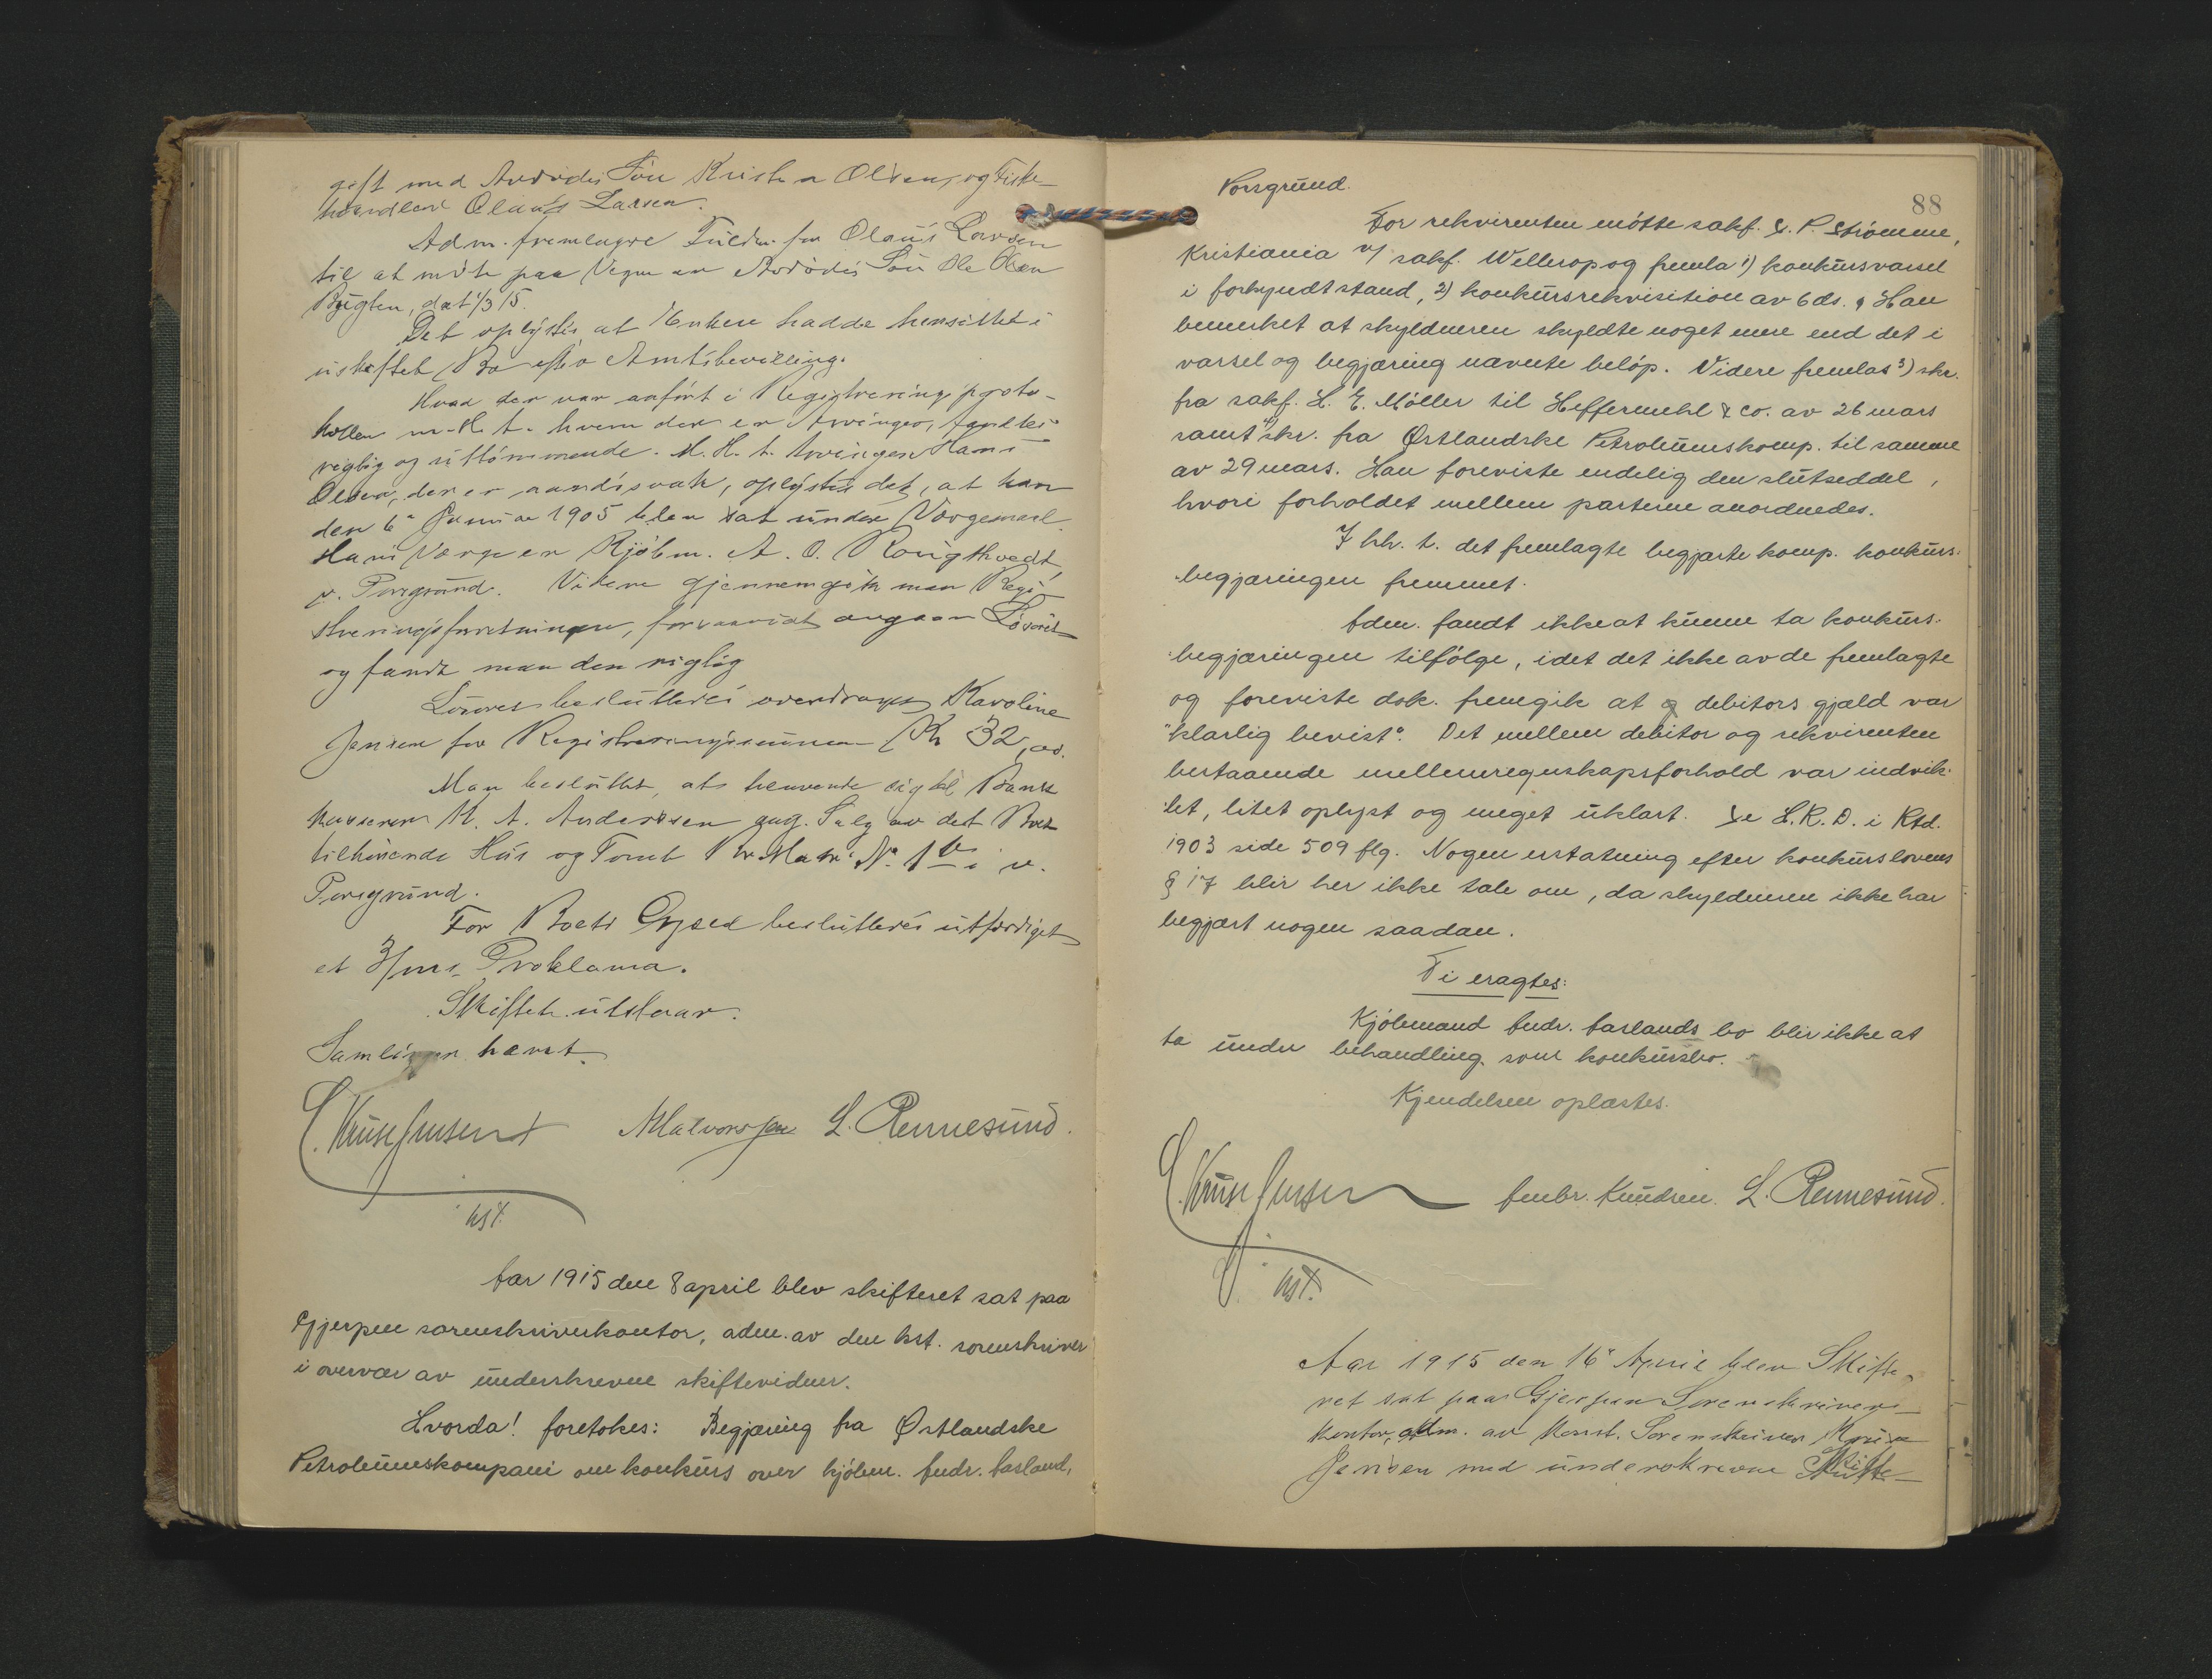 gift med Avdødes Søn Kristen Olsen, og Fiske-
handler Olaus Larsen.
Adm. fremlagde Fuldm. fra Olaus Larsen
til at møte paa Vegne av Avdødes Søn Ole Olsen
dat 1/3 15.
Det oplystes at Enken hadde hensittet i
uskiftet Bo efter Amtsbevilling.
Hvad der var anført i Registreringsproto-
kollen m. H. t. hvem der er Arvinger, fandtes
rigtig og uttømmende. M. H. t. Arvingen Hans
Olsen, der er aandssvak, oplystes det, at han
den 6te Januar 1905 blev sat under Værgemaal.
Hans Værge er Kjøbm. A. O. Rougthvedt,
v. Porsgrund. Videre gjennemgik man Regi-
streringsforretningen, forsaavidt angaar Løsøret
og fandt man den rigtig
Løsøret besluttedes overdraget Karoline
Jensen for Registreringssummen Kr 32,00.
Man besluttet, at henvende sig til Bank
kasserer K. A. Andersen ang. Salg av det Boet
tilhørende Hus og Tomt Br. Matr. No 1b i v.
Porsgrund.
For Boets Gjæld besluttedes utfærdiget
et 3/mrs Proklama.
Skiftet utstaar.
Samlingen hævet.
C. Kruse Jensen Halvorsen L. Rennesund.
kst.
Aar 1915 den 8 april blev skifteret sat paa
Gjerpen sorenskriverkontor, adm. av den kst. sorenskriver
i overvær av underskrevne skiftevidner.
Hvorda! foretokes: Begjæring fra Østlandske
Petroleumskompani om konkurs over kjøbm. Andr. Aasland,
88
Porsgrund.
For rekvirenten møtte sakf. S. P. Strømme,
Kristiania v/ sakf. Wellerop og fremla 1) konkursvarsel
i forkyndt stand, 2) konkursrekvisition av 6 ds. Han
bemerket at skyldneren skyldte noget mere end det i
varsel og begjæring nævnte beløp. Videre fremlas 3) skr.
fra sakf. H. E. Møller til Heffermehl & co. av 26 mars
samt 4) skr. fra Østlandske Petroleumskomp. til samme
av 29 mars. Han foreviste endelig den slutseddel,
hvori forholdet mellem parterne anordnedes.
I hh. t. det fremlagte begjærte komp. konkurs-
begjæringen fremmet.
Adm. fandt ikke at kunne ta konkurs-
begjæringen tilfølge, idet det ikke av de fremlagte
og foreviste dok. fremgik at debitors gjæld var
"klarlig bevist". Det mellem debitor og rekvirenten
bestaaende mellemregnskapsforhold var indvik-
let, litet oplyst og meget uklart. Se H.R.D. i Rtd.
1903 side 509 flg. Nogen erstatning efter konkurslovens
§ 17 blir her ikke tale om, da skyldneren ikke har
begjært nogen saadan.
Ti eragtes:
Kjøbmand Andr. Aaslands bo blir ikke at
ta under behandling som konkursbo.
Kjendelsen oplæstes.
C. Kruse Jensen Ambr. Knudsen. L. Rennesund.
kst.
Aar 1915 den 16de April blev Skifte-
ret sat paa Gjerpen Sorenskriver-
kontor, adm. av Konst. Sorenskriver Kruse
Jensen med underskrevne Skifte-